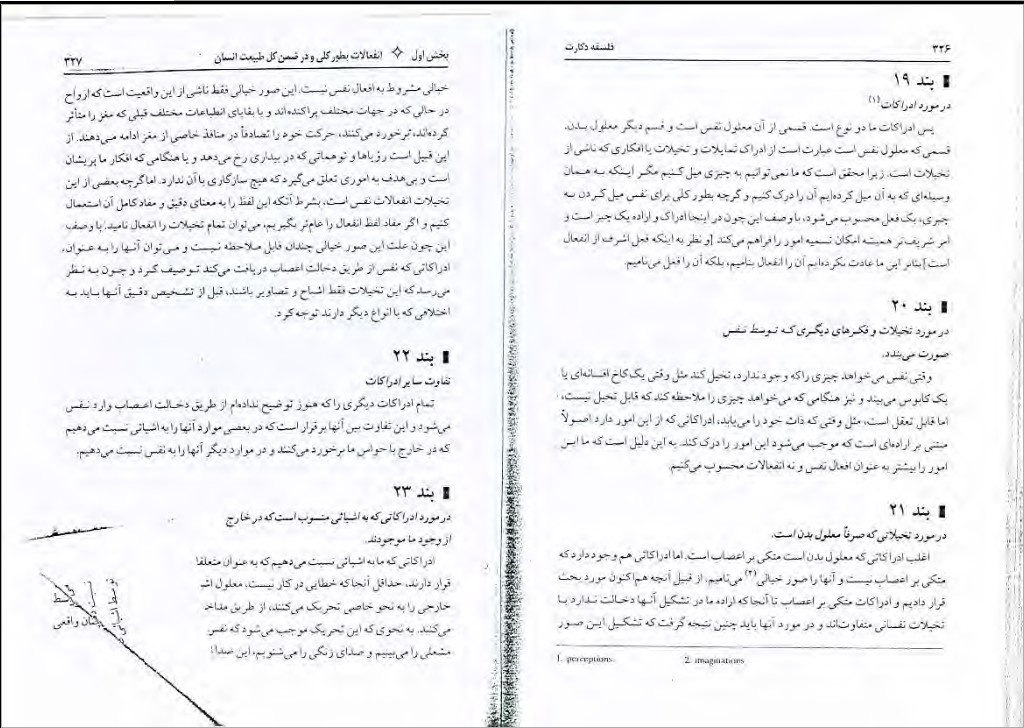 ۳۲۶
فلسفه دکارت
بند ۱۹
در مورد ادراکات(۱)
پس ادراکات ما دو نوع است. قسمی از آن معلول نفس است و قسم دیگر معلول بدن.
قسمی که معلول نفس است عبارت است از ادراک تمایلات و تخیلات یا افکاری که ناشی از
تخیلات است. زیرا محقق است که ما نمی‌توانیم به چیزی میل کنیم مگر اینکه به همان
وسیله‌ای که به آن میل کرده‌ایم آن را درک کنیم و گرچه بطور کلی برای نفس میل کردن به
چیزی، یک فعل محسوب می‌شود، با وصف این چون در اینجا ادراک و اراده یک چیز است و
امر شریف‌تر همیشه امکان تسمیه امور را فراهم می‌کند [و نظر به اینکه فعل اشرف از انفعال
است] بنابر این ما عادت نکرده‌ایم آن را انفعال بنامیم، بلکه آن را فعل می‌نامیم.
بند ۲۰
در مورد تخیلات و فکرهای دیگری که توسط نفس
صورت می‌بندد.
وقتی نفس می‌خواهد چیزی را که وجود ندارد، تخیل کند مثل وقتی یک کاخ افسانه‌ای یا
یک کابوس می‌بیند و نیز هنگامی که می‌خواهد چیزی را ملاحظه کند که قابل تخیل نیست،
اما قابل تعقل است، مثل وقتی که ذات خود را می‌یابد، ادراکاتی که از این امور دارد اصولاً
مبتنی بر اراده‌ای است که موجب می‌شود این امور را درک کند. به این دلیل است که ما این
امور را بیشتر به عنوان افعال نفس و نه انفعالات محسوب می‌کنیم.
بند ۲۱
در مورد تخیلاتی که صرفاً معلول بدن است.
اغلب ادراکاتی که معلول بدن است متکی بر اعصاب است. اما ادراکاتی هم وجود دارد که
متکی بر اعصاب نیست و آنها را صور خیالی(۲) می‌نامیم. از قبیل آنچه هم‌اکنون مورد بحث
قرار دادیم و ادراکات متکی بر اعصاب تا آنجا که اراده ما در تشکیل آنها دخالت ندارد با
تخیلات نفسانی متفاوت‌اند و در مورد آنها باید چنین نتیجه گرفت که تشکیل این صور
1. perceptions. 2. imaginations
بخش اول ✧ انفعالات بطور کلی و در ضمن کل طبیعت انسان
۳۲۷
خیالی مشروط به افعال نفس نیست. این صور خیالی فقط ناشی از این واقعیت است که ارواح
در حالی که در جهات مختلف پراکنده‌اند و با بقایای انطباعات مختلف قبلی که مغز را متأثر
کرده‌اند، برخورد می‌کنند، حرکت خود را تصادفاً در منافذ خاصی از مغز ادامه می‌دهند. از
این قبیل است رؤیاها و توهماتی که در بیداری رخ می‌دهد و یا هنگامی که افکار ما پریشان
است و بی‌هدف به اموری تعلق می‌گیرد که هیچ سازگاری با آن ندارد. اما گرچه بعضی از این
تخیلات انفعالات نفس است، بشرط آنکه این لفظ را به معنای دقیق و مفاد کامل آن استعمال
کنیم و اگر مفاد لفظ انفعال را عام‌تر بگیریم، می‌توان تمام تخیلات را انفعال نامید. با وصف
این چون علت این صور خیالی چندان قابل ملاحظه نیست و می‌توان آنها را به عنوان،
ادراکاتی که نفس از طریق دخالت اعصاب دریافت می‌کند توصیف کرد و چون به نظر
می‌رسد که این تخیلات فقط اشباح و تصاویر باشند، قبل از تشخیص دقیق آنها باید به
اختلافی که با انواع دیگر دارند توجه کرد.
بند ۲۲
تفاوت سایر ادراکات
تمام ادراکات دیگری را که هنوز توضیح نداده‌ام از طریق دخالت اعصاب وارد نفس
می‌شود و این تفاوت بین آنها برقرار است که در بعضی موارد آنها را به اشیائی نسبت می‌دهیم
که در خارج با حواس ما برخورد می‌کنند و در موارد دیگر آنها را به نفس نسبت می‌دهیم.
بند ۲۳
در مورد ادراکاتی که به اشیائی منسوب است که در خارج
از وجود ما موجودند.
ادراکاتی که ما به اشیائی نسبت می‌دهیم که به عنوان متعلقا
قرار دارند، حداقل آنجا که خطایی در کار نیست، معلول اشـ
خارجی را به نحو خاصی تحریک می‌کنند، از طریق مداخـ
می‌کنند. به نحوی که این تحریک موجب می‌شود که نفس
مشعلی را می‌بینیم و صدای زنگی را می‌شنویم، این صدا
توسط اشیائی
نسبت
واقعی